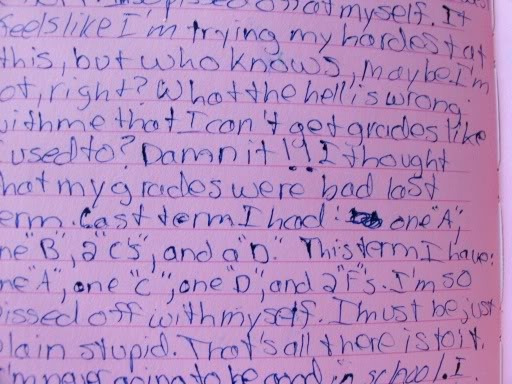 pissed off at myself. It
feels like I'm trying my hardest at
this, but who knows, maybe I'm
ot, right? What the hell is wrong
with me that I can't get grades like
used to? Damn it!!! I thought
hat my grades were bad last
erm. Last term I had: one "A",
ne "B", 2 "C's", and a "D". This term I have:
ne "A", one "C", one "D", and 2 "F"s. I'm so
issed off with myself. I must be just
lain stupid. That's all there is to it.
I'm never going to be good in school. I